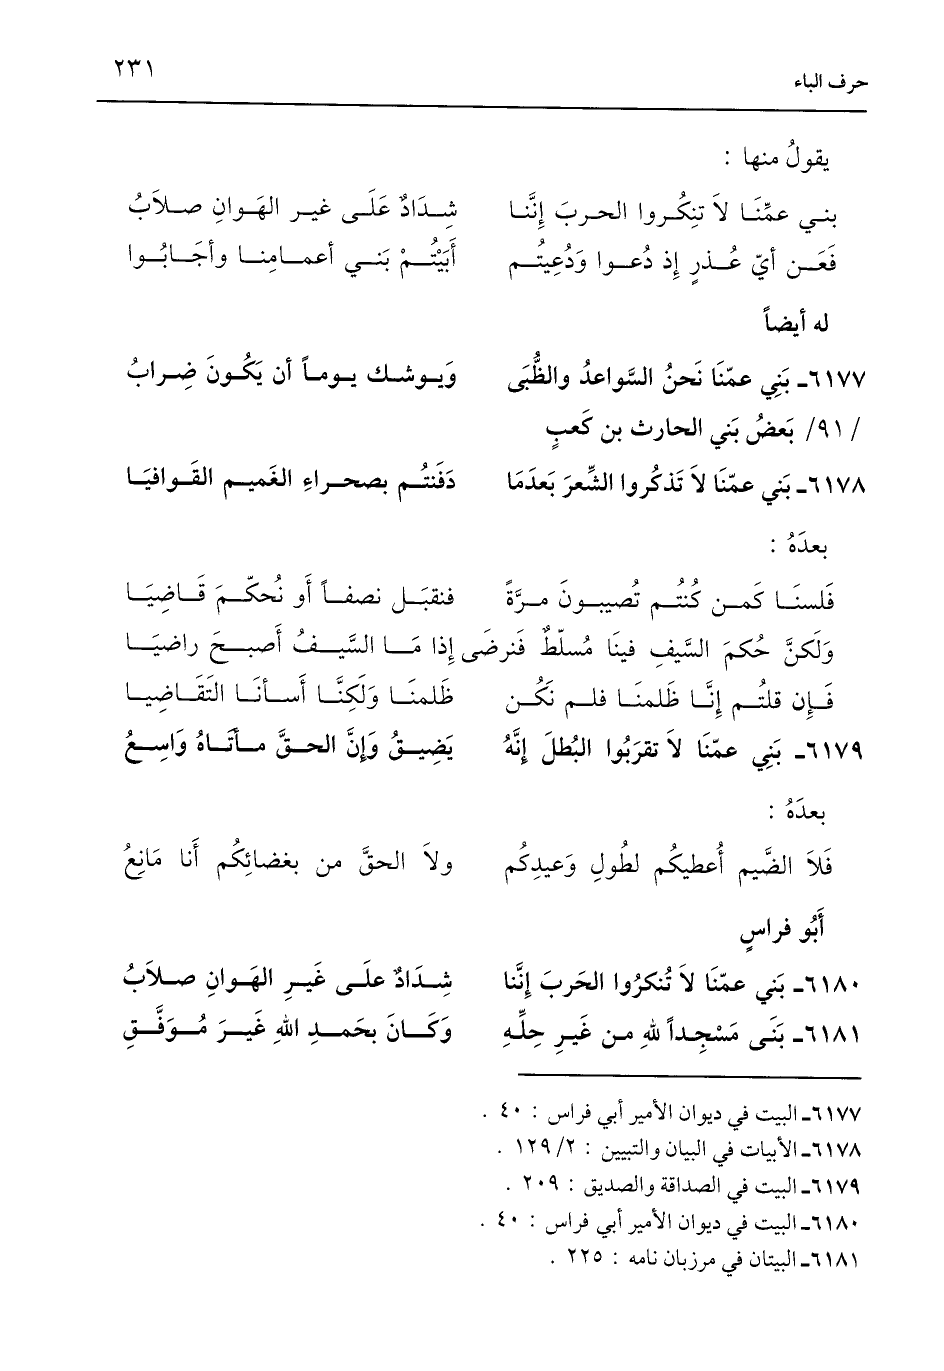 حرف الباء ٢٣١
يقولُ منها :
بني عمِّنَا لاَ تنِكُروا الحربَ إنَّنا شِدَادٌ عَلَى غير الهَوانِ صلاَبُ
فَعَن أيّ عُذرٍ إذ دُعوا وَدُعِيتُم أَبَيْتُمْ بَني أعمامِنا وأجَابُوا
له أيضاً
٦١٧٧ـ بَنِي عمّنَا نَحنُ السَّواعدُ والظُّبَى وَيوشك يوماً أن يَكُونَ ضِرابُ
/ ٩١/ بَعضُ بَني الحارث بن كَعبٍ
٦١٧٨ـ بَني عمّنَا لاَ تَذكُروا الشِّعرَ بَعدَمَا دَفَنتُم بصحراءِ الغَميم القَوافيَا
بعدَهُ :
فَلسنَا كَمن كُنتُم تُصيبونَ مرَّةً فنقبَل نصفاً أو نُحكّمَ قَاضِيَا
وَلَكنَّ حُكمَ السَّيفِ فينَا مُسلّطٌ فَنرضَى إذا مَا السَّيفُ أصبحَ راضيَا
فَإن قلتُم إنَّا ظَلمنَا فلم نَكُن ظَلمنَا وَلَكِنَّا أَسأنَا التَقَاضِيا
٦١٧٩ـ بَنِي عمّنَا لاَ تقرَبُوا البُطلَ إنَّهُ يَضِيقُ وَإنَّ الحقَّ مأتَاهُ وَاسِعُ
بعدَهُ :
فَلاَ الضَّيم أُعطيكُم لطُولِ وَعيدِكُم ولاَ الحقَّ من بغضائِكُم أَنا مَانِعُ
أَبُو فراسٍ
٦١٨٠ـ بَني عمّنَا لاَ تُنكرُوا الحَربَ إنَّنا شِدَادٌ علَى غَيرِ الهَوانِ صلاَبُ
٦١٨١ـ بَنَى مَسْجِداً للهِ من غَيرِ حِلِّهِ وَكَانَ بحَمدِ اللهِ غَيرَ مُوَفَّقِ
٦١٧٧ـ البيت في ديوان الأمير أبي فراس : ٤٠ .
٦١٧٨ـ الأبيات في البيان والتبيين : ٢/ ١٢٩ .
٦١٧٩ـ البيت في الصداقة والصديق : ٢٠٩ .
٦١٨٠ـ البيت في ديوان الأمير أبي فراس : ٤٠ .
٦١٨١ـ البيتان في مرزبان نامه : ٢٢٥ .